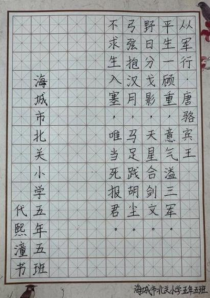 从军行·唐骆宾王
平生一顾重，意气溢三军。
野日分戈影，天星合剑文。
弓弦抱汉月，马足践胡尘。
不求生入塞，唯当死报君。
海城市北关小学五年五班
代熙潼书
海城市北关小学五年五班